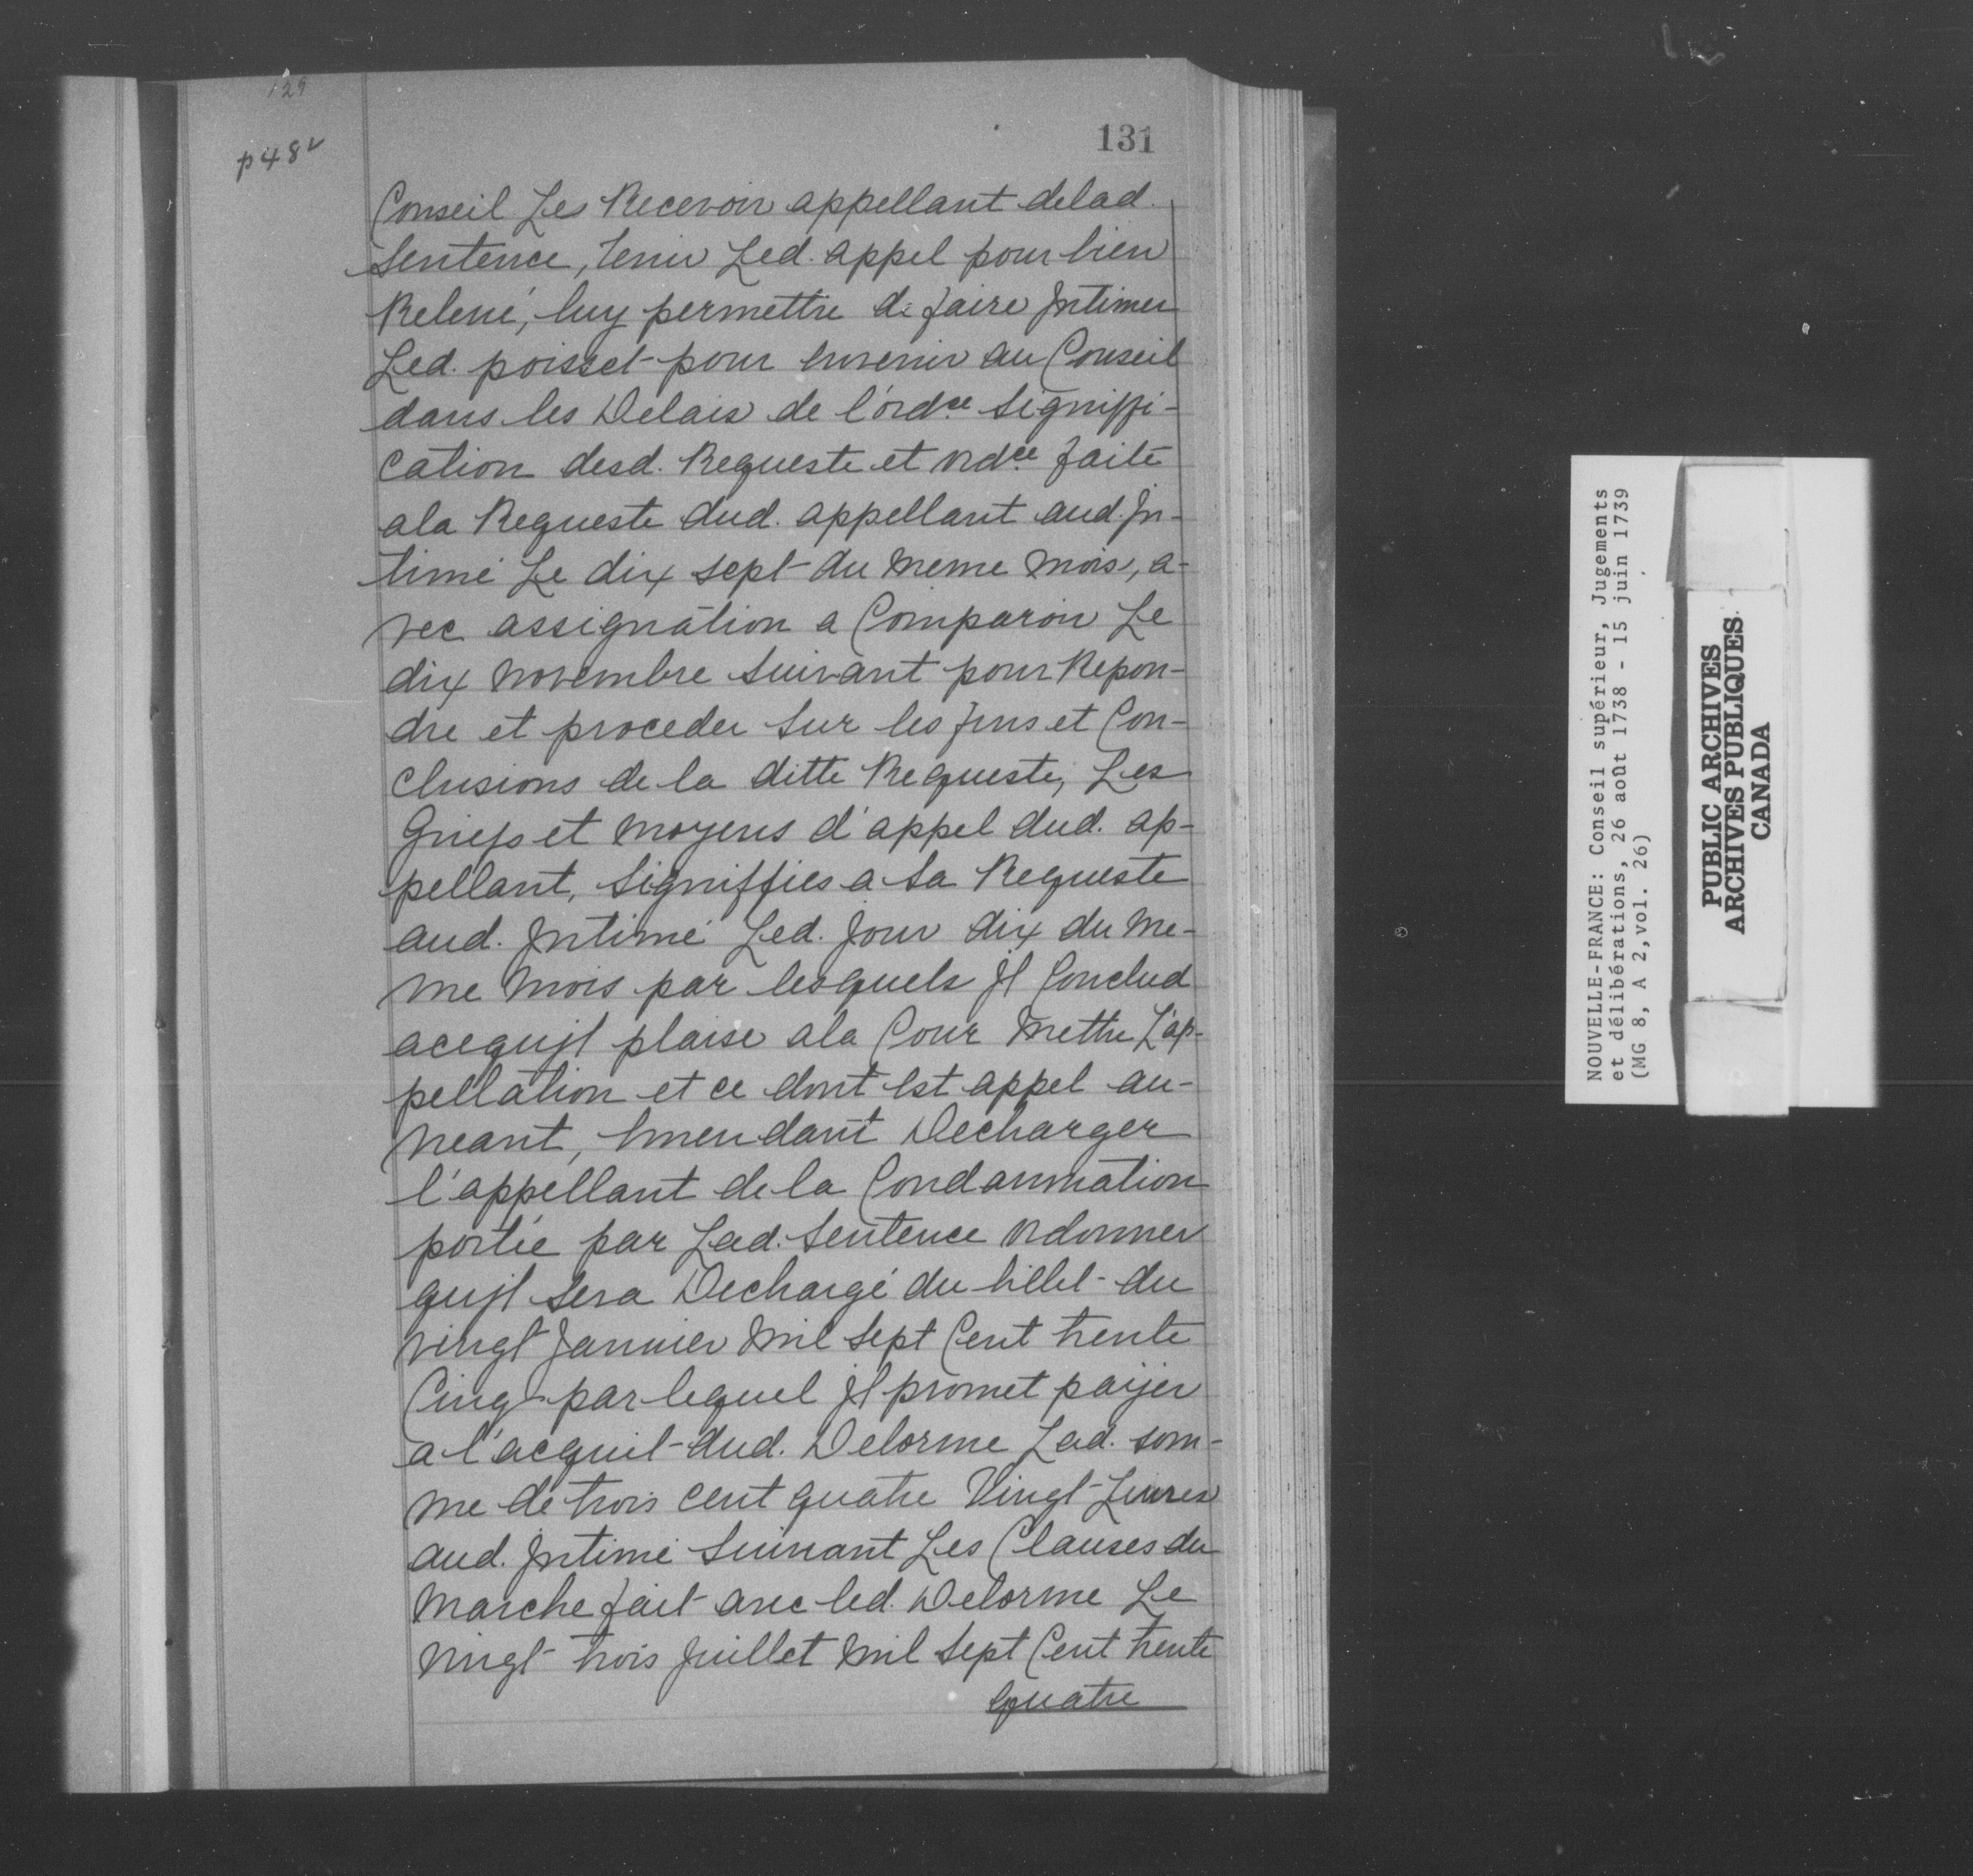 129
p48v
131
Conseil Les Recevoir appellant delad.
Sentence, tenir Led. appel pour bien
Relevé, luy permettre de faire Intimer
Led. poisset pour envenir au Conseil
dans les Delais de l'ordce. Signiffi-
cation desd. Requeste et ordce. faite
ala Requeste dud. appellant aud. In-
timé Le dix sept du meme mois, a-
vec assignation a Comparoir Le
dix novembre suivant pour Repon-
dre et proceder sur les fins et Con-
clusions de la ditte Requeste, Les
Griefs et moyens d'appel dud. ap-
pellant, signiffies a sa Requeste
aud. Intimé Led. jour dix du me-
me mois par lesquels jl Conclud
acequjl plaise ala Cour mettre L'ap-
pellation et ce dont est appel au-
neant, Emendant Decharger
l'appellant de la Condamnation
portée par Lad. Sentence ordonner
qujl sera Dechargé du billet du
vingt Janvier mil sept Cent trente
Cinq par lequel jl promet paÿer
a l'acquit dud. Delorme Lad. som-
me de trois cent quatre Vingt Livres
aud. Intimé suivant Les Clauses du
marche fait avec led. Delorme Le
vingt trois juillet mil sept Cent trente
quatre
NOUVELLE-FRANCE: Conseil supérieur, Jugements
et délibérations, 26 août 1738 - 15 juin 1739
(MG 8, A 2, vol. 26)
PUBLIC ARCHIVES
ARCHIVES PUBLIQUES
CANADA